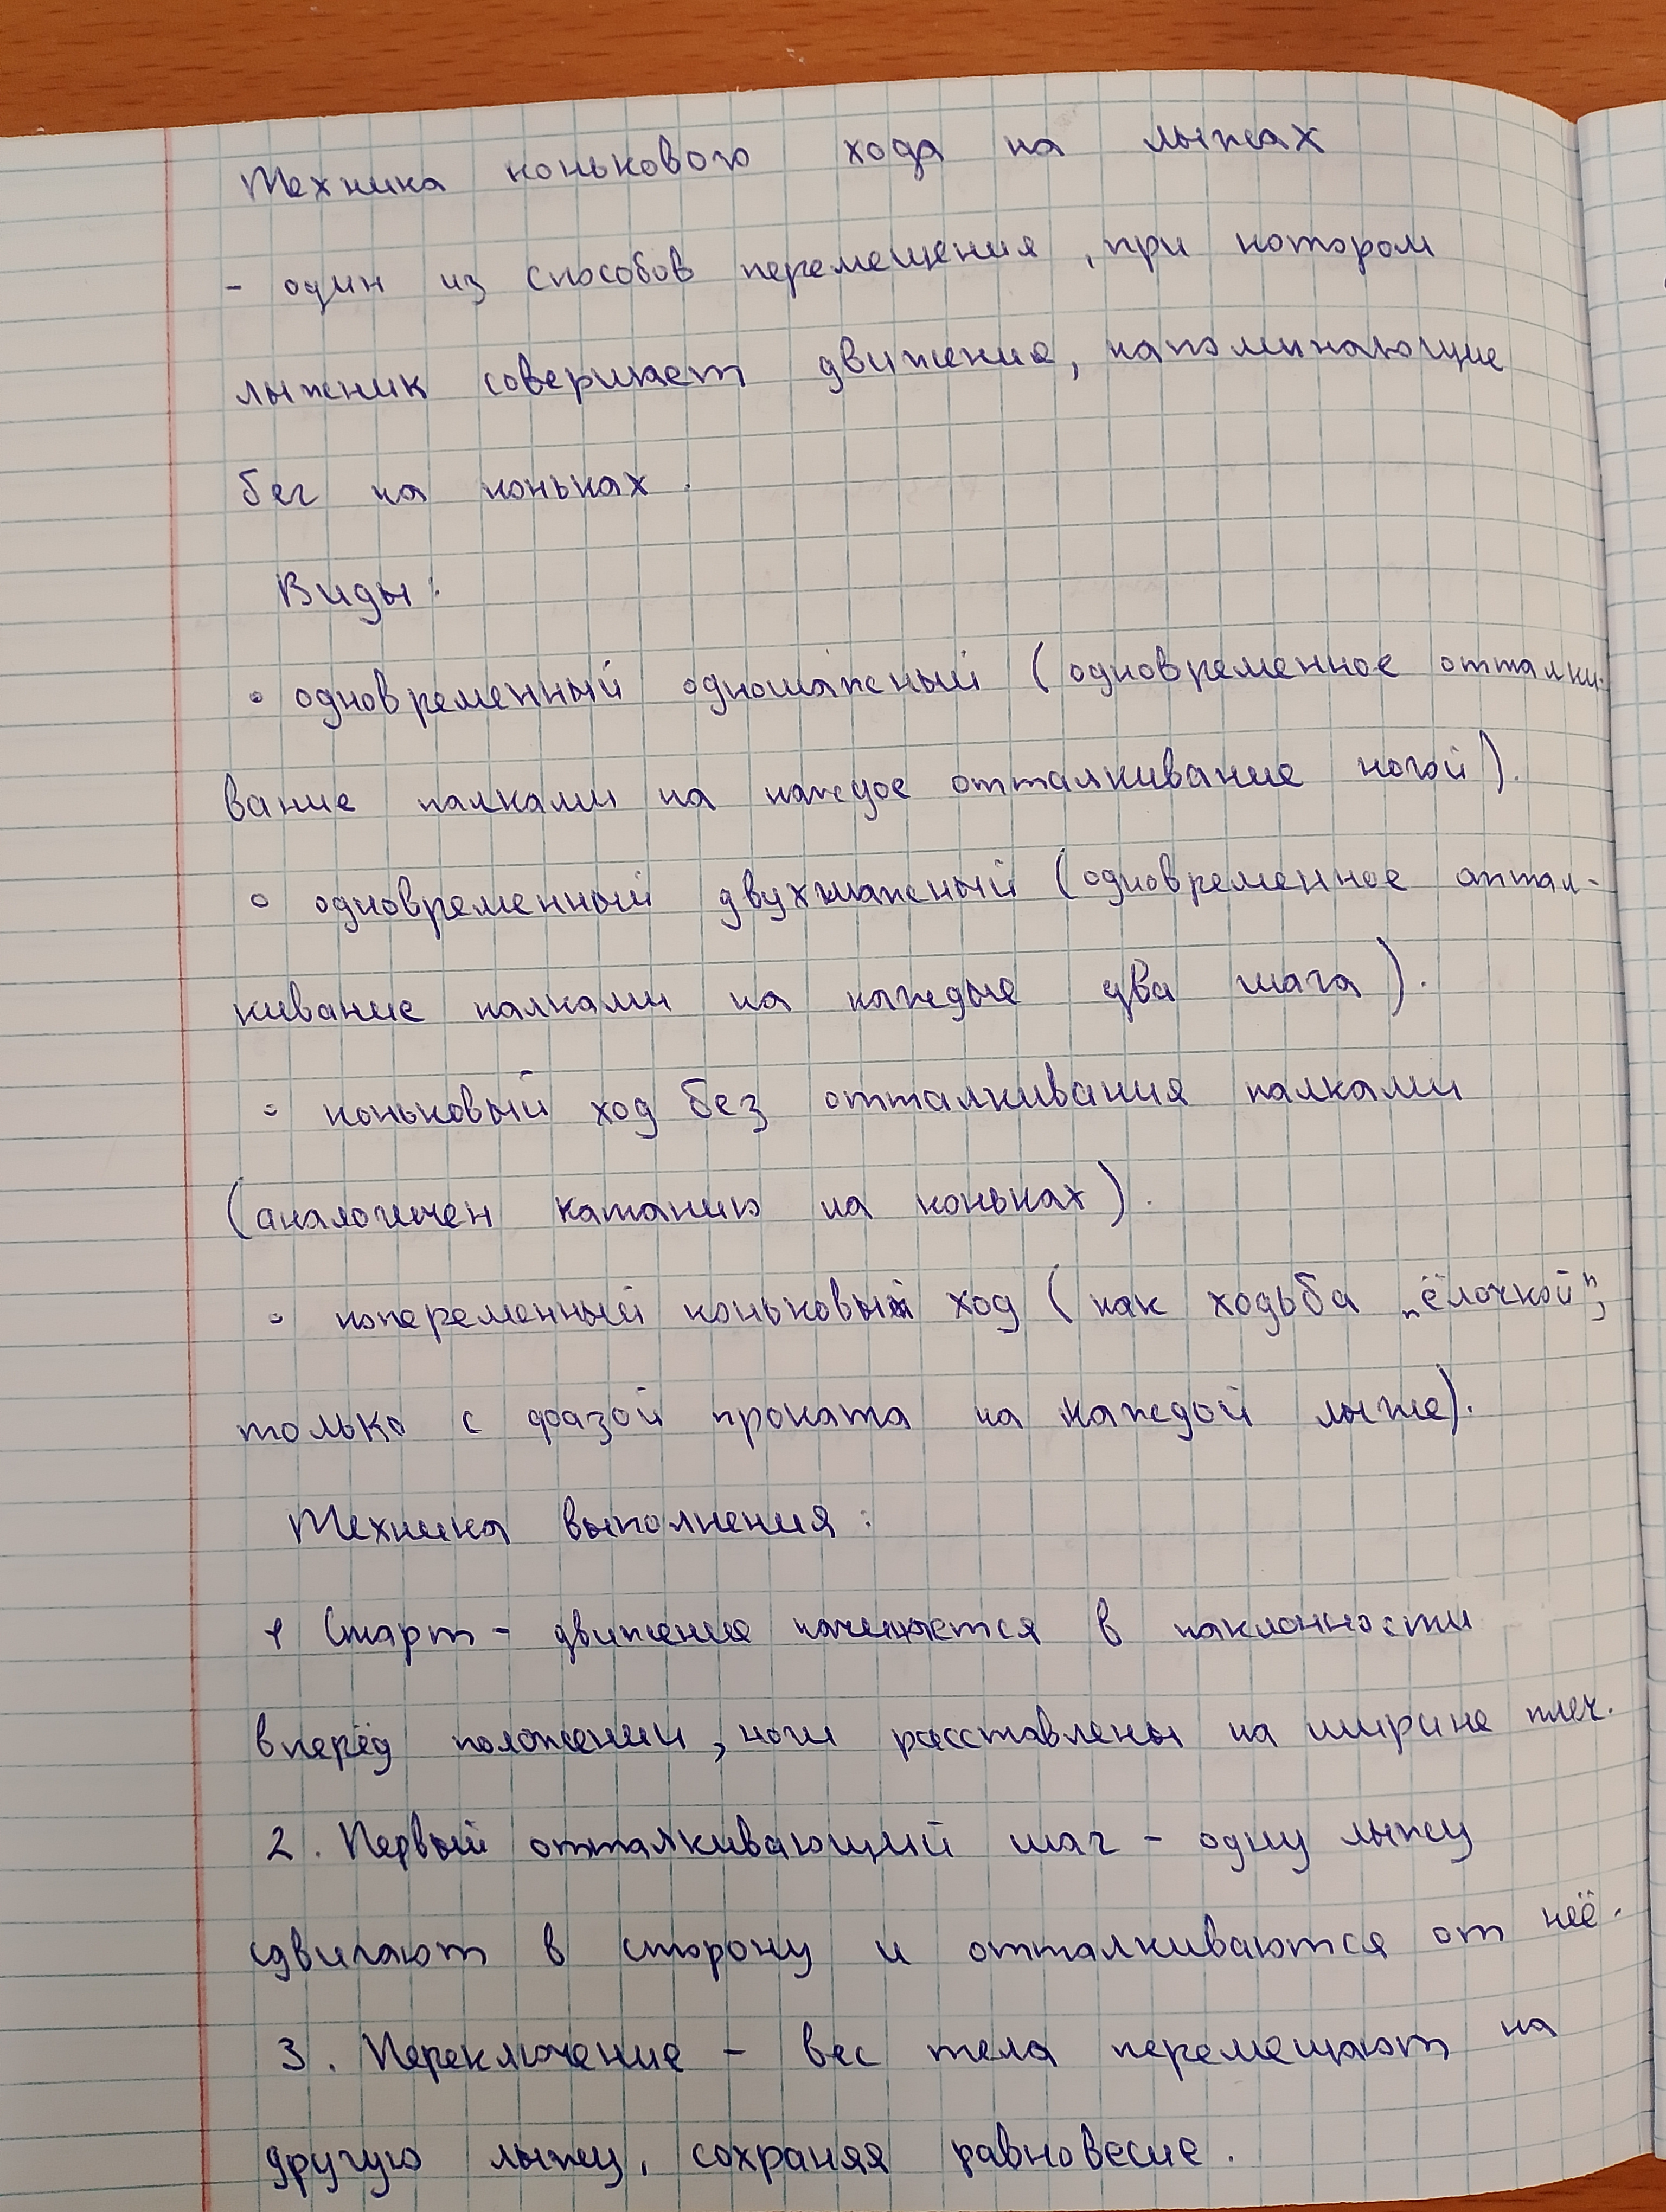 Техника конькового хода на лыжах
- один из способов перемещения, при котором
лыжник совершает движение, напоминающие
бег на коньках.
Виды:
• одновременный одношажный (одновременное отталки-
вание палками на каждое отталкивание ногой).
• одновременный двухшажный (одновременное оттал-
кивание палками на каждые два шага).
• коньковый ход без отталкивания палками
(аналогичен катанию на коньках).
• попеременный коньковый ход (как ходьба „ёлочкой",
только с фазой проката на каждой лыже).
Техника выполнения:
1 Старт - движение начинается в наклонности
вперёд положении, ноги расставлены на ширине плеч.
2. Первый отталкивающий шаг - одну лыжу
сдвигают в сторону и отталкиваются от неё.
3. Переключение - вес тела перемещают на
другую лыжу, сохраняя равновесие.